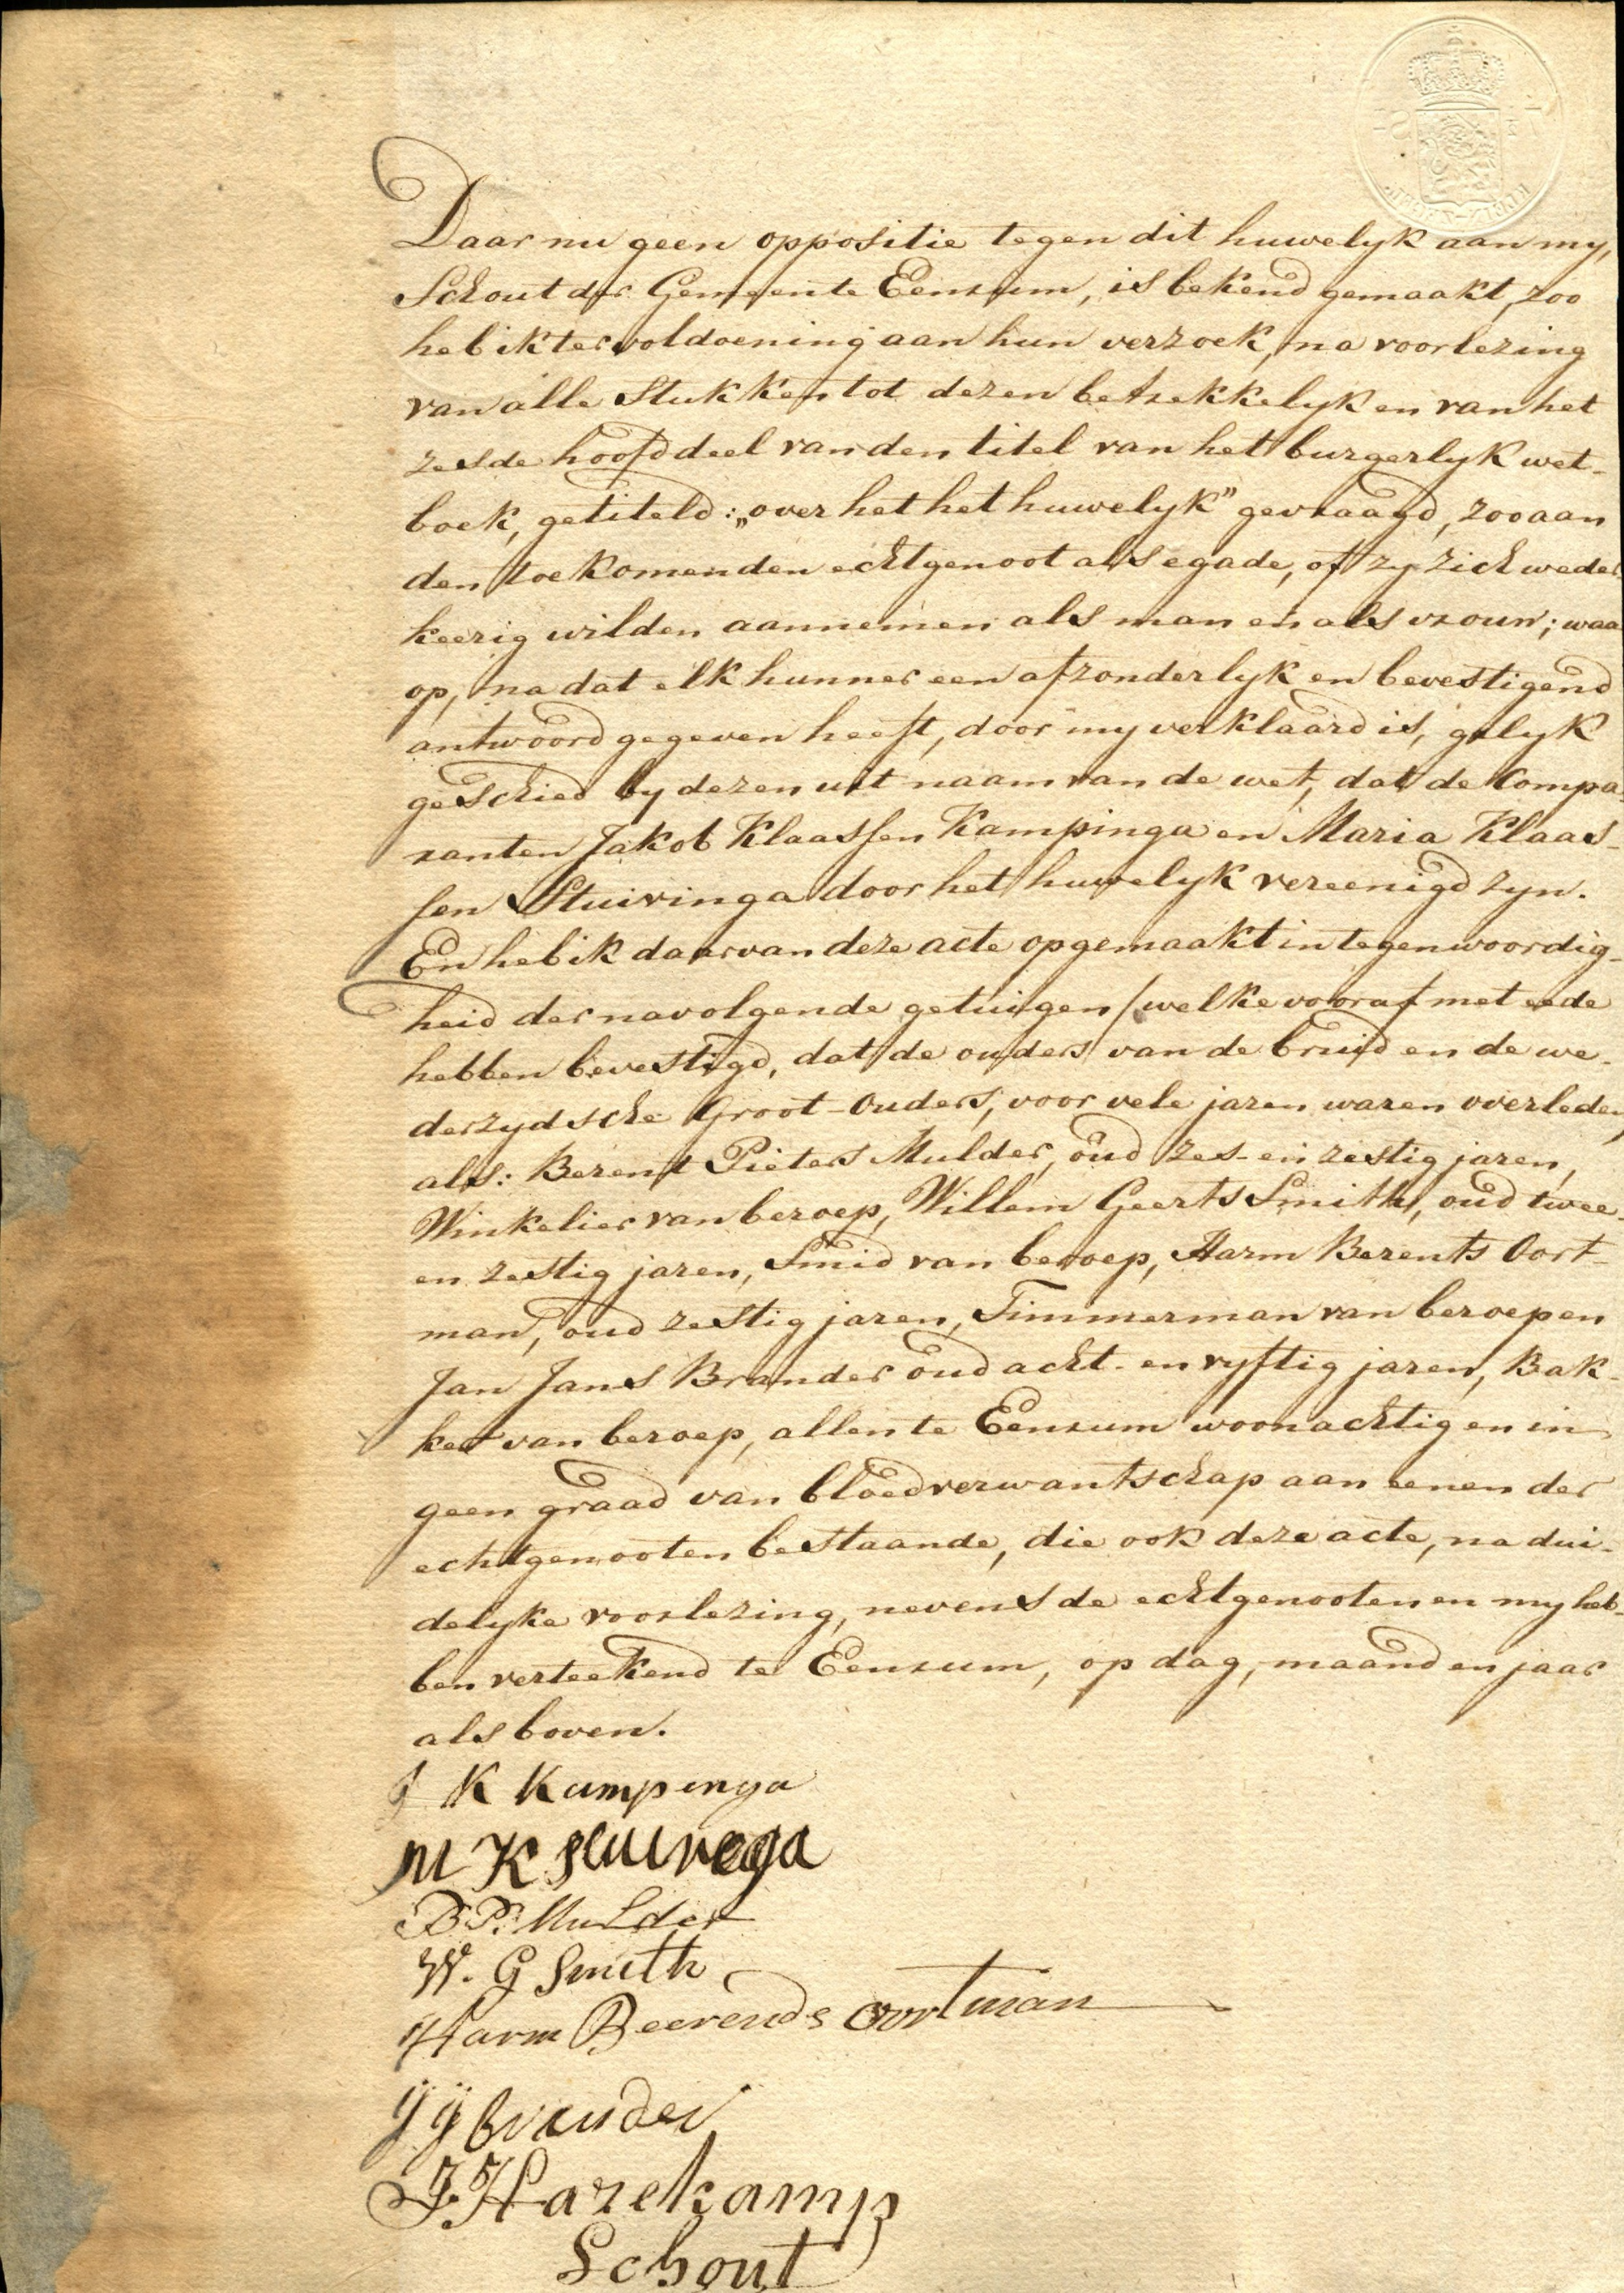 Daar nu geen oppositie tegen dit huwelyk aan my,
Schout der Gemeente Eenrum, is bekend gemaakt, zoo
heb ik ter voldoening aan hun verzoek, na voorlezing
van alle Stukken tot dezen betrekkelyk en van het
zesde hoofddeel van den titel van het burgerlyk wet-
boek, getiteld: „over het het huwelyk" gevraagd, zoo aan
den toekomenden echtgenoot als egade, of zy zich weder
keerig wilden aannemen als man en als vrouw; waa
op, na dat elk hunner een afzonderlyk en bevestigend
antwoord gegeven heeft, door my verklaard is, gelyk
geschied by dezen uit naam van de wet, dat de Compa-
ranten Jakob Klaassen Kampinga en Maria Klaas-
sen Stuivinga door het huwelyk vereenigd zyn.
En heb ik daarvan deze acte opgemaakt in tegenwoordig-
heid der navolgende getuigen /welke vooraf met eede
hebben bevestigd, dat de ouders van de bruid en de we-
derzydsche Groot-Ouders, voor vele jaren waren overleden/
als: Berent Pieters Mulder, oud zes- en zestig jaren,
Winkelier van beroep, Willem Geerts Smith, oud twee
en zestig jaren, Smid van beroep, Harm Berents Oort-
man, oud zestig jaren, Timmerman van beroep en
Jan Jans Brander oud acht- en vyftig jaren, Bak-
ker van beroep, allen te Eenrum woonachtig en in
geen graad van bloedverwantschap aan eenen der
echtgenooten bestaande, die ook deze acte, na dui-
delyke voorlezing, nevens de echtgenooten en my heb-
ben verteekend te Eenrum, op dag, maand en jaar
als boven.
J K Kampinga
M K Stuivega
B. P. Mulder
W. G Smith
Harm Beerends oortman
JJ brander
J. Hazekamp
Schout